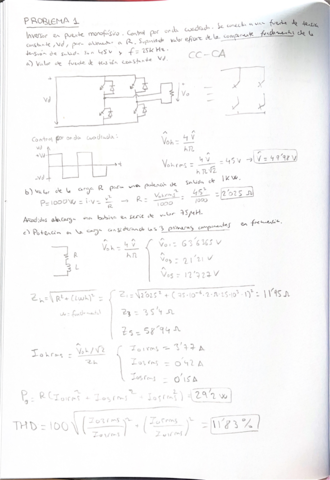 PROBLEMA 1
Inversor en puente monofásico. Control por onda cuadrada. Se conecta a una fuente de tensión
constante, Vd, para alimentar a R. Suponer valor eficaz de la componente fundamental de la
tensión de salida 45V y f = 25kHz.
CC-CA
a) Valor de fuente de tensión constante Vd.
Vd
Control onda cuadrada:
+Vd
-Vd
V̂oh = 4V̂ / hΠ
Vohrms = 4V̂ / hΠ√2 = 45V → V̂ = 49'98V
b) Valor de la carga R para una potencia de salida de 1kW.
P = 1000W = I·V = V²/R → R = Vorms²/1000 = 45²/1000 = 2'025 Ω
Añadida a la carga una bobina en serie de valor 75μH.
c) Potencia en la carga considerando los 3 primeros componentes en frecuencia.
R
L
V̂oh = 4V̂ / hΠ
V̂o1 = 63'6365V
V̂o3 = 21'21V
V̂o5 = 12'727V
Zh = √R² + (Lωh)²
Z1 = √2'025² + (75·10⁻⁶·2·Π·25·10³·1)² = 11'95 Ω
Z3 = 35'4 Ω
Z5 = 58'94 Ω
Iohrms = V̂oh/√2 / Zh
Io1rms = 3'77 A
Io3rms = 0'42 A
Io5rms = 0'15 A
Po = R(Io1rms² + Io3rms² + Io5rms²) = 29'2 W
THD = 100 √(Io3rms/Io1rms)² + (Io5rms/Io1rms)² = 11'83 %